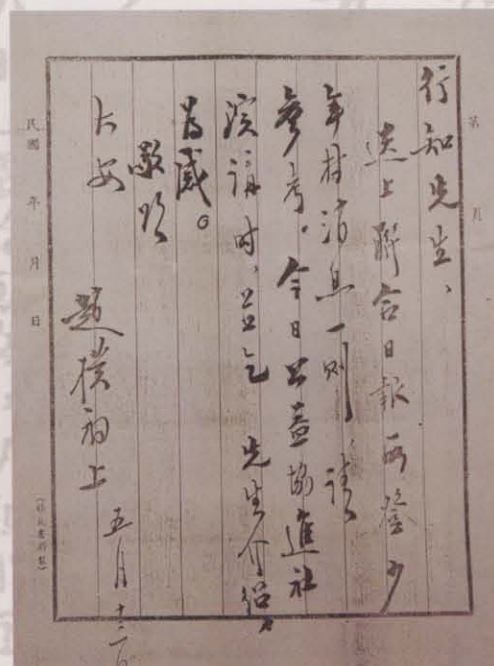 第 頁
行知先生、
送上聯合日報所登少
年村消息一則、請
參考。今日公益協進社
演講時、並乞 先生介紹、
為感。
敬頌
大安
趙樸初上 五月十二日
民國 年 月 日